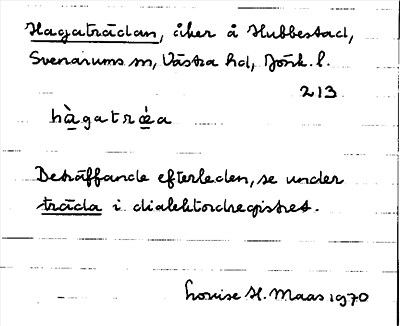 Hagaträdan, åker å Hubbestad,
Svenarums sn, Västra hd, Jönk. l.
213
hàgatrǽa
Beträffande efterleden, se under
träda i dialektordregistret.
Louise H. Maas 1970